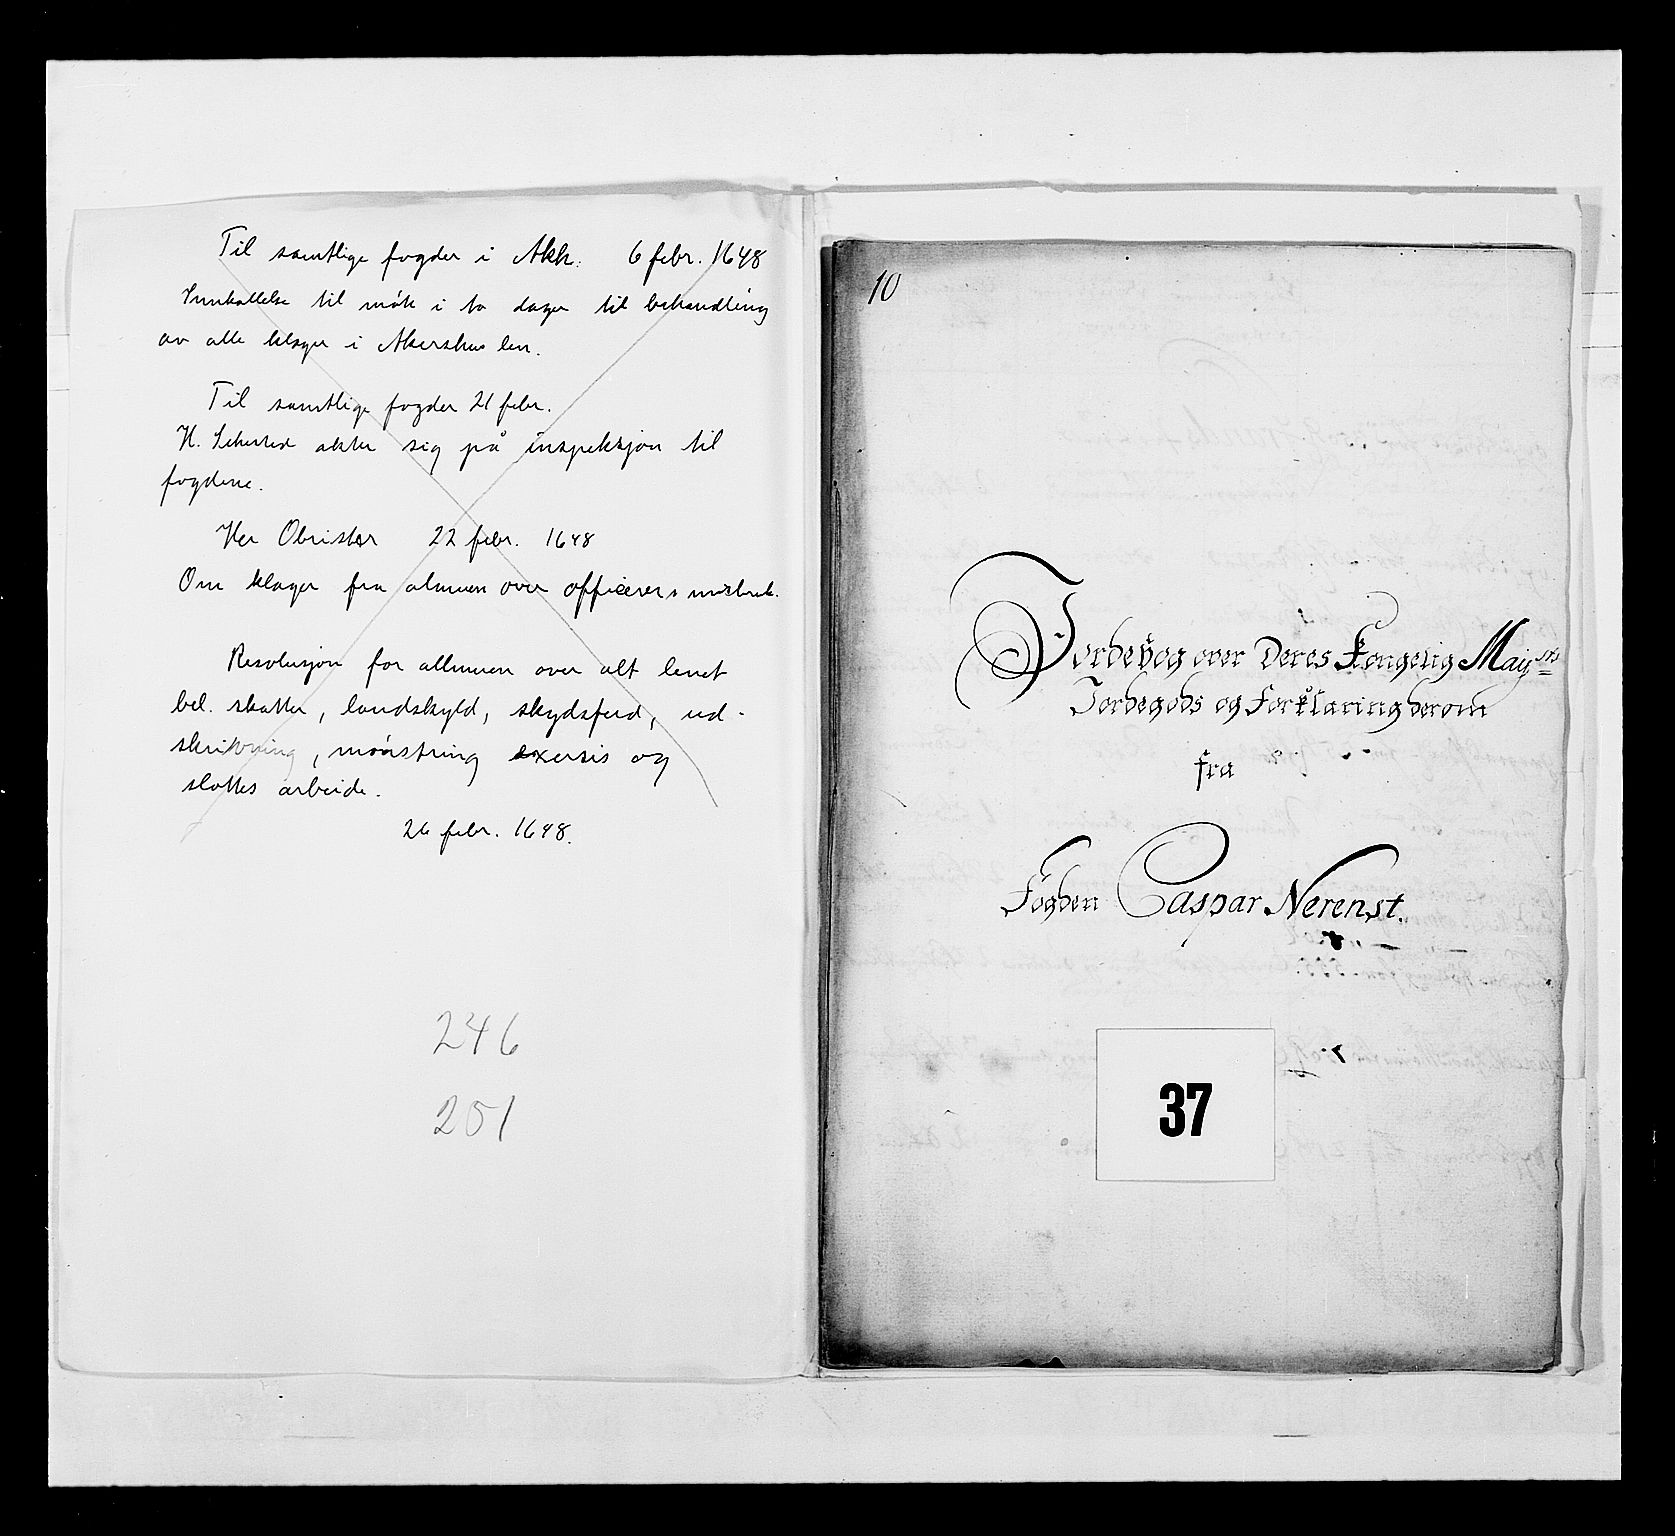 Til samtlige fogder i Akh. 6 febr. 1648
Innkallelse til møte i to dager til behandling
av alle klager i Akershus len.
Til samtlige fogder 21 febr.
H. Sehested akter sig på inspeksjon til
fogdene.
Her Obrister 22 febr. 1648
Om klager fra almuen over officerers misbruk.
Resolusjon for allmuen over alt lenet
bel. skatter, landskyld, skydsferd, ud-
skrivning, mønstring exersis og
slottes arbeide.
26 febr. 1648.
246
251
10
Jordebog over Deres Kongelig Mayst:s
Jordegods og Forklaring derom
fra
Fogden Caspar Nerenst.
37